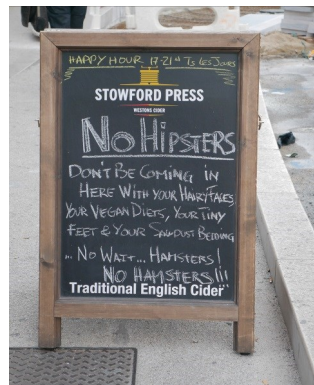 HAPPY HOUR 17-21H Ts LES JOURS
STOWFORD PRESS
WESTONS CIDER
No HIPSTERS
DON'T BE COMING IN
HERE WITH YOUR HAIRY FACES
YOUR VEGAN DIETS, YOUR TINY
FEET & YOUR SAWDUST BEDDING
... NO WAIT... HAMSTERS!
NO HAMSTERS!!!
Traditional English Cider